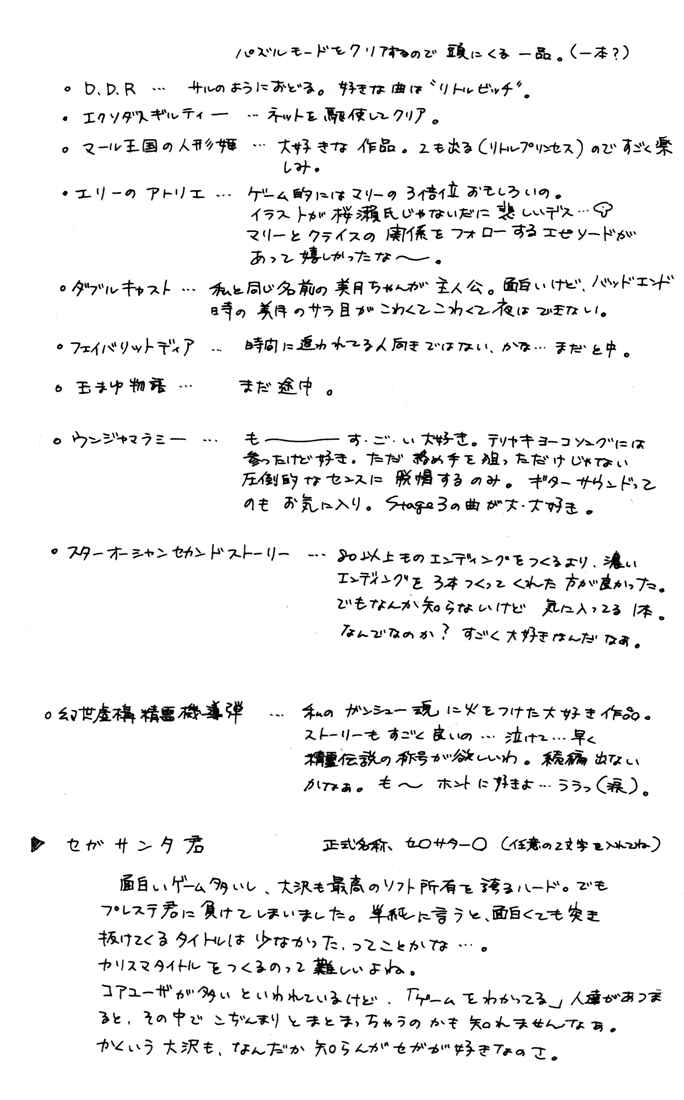 パズルモードをクリアするので頭にくる一品。(一本?)
○ D.D.R … サルのようにおどる。好きな曲は"リトルビッチ"。
○ エクソダスギルティー … ネットを駆使してクリア。
○ マール王国の人形姫 … 大好きな作品。2も出る(リトルプリンセス)のですごく楽
しみ。
○ エリーのアトリエ … ゲーム的にはマリーの3倍位おもしろいの。
イラストが桜瀬氏じゃないだに悲しいデス…
マリーとクライスの関係をフォローするエピソードが
あって嬉しかったな〜。
○ ダブルキャスト … 私と同じ名前の美月ちゃんが主人公。面白いけど、バッドエンド
時の美月のサラ目がこわくてこわくて夜はできない。
○ フェイバリットディア … 時間に追われてる人向きではない、かな… まだと中。
○ 玉まゆ物語 … まだ途中。
○ ウンジャマラミー … も――――す・ご・い大好き。テリヤキヨーコソングには
参ったけど好き。ただ務め手を狙っただけじゃない
圧倒的なセンスに脱帽するのみ。ギターサウンドって
のもお気に入り。Stage3の曲が大・大好き。
○ スターオーシャンセカンドストーリー … 80以上ものエンディングをつくるより、濃い
エンディングを3本つくってくれた方が良かった。
でもなんか知らないけど気に入ってる1本。
なんでなのか?すごく大好きなんだなぁ。
○ 幻世虚構精霊機導弾 … 私のガンシュー魂に火をつけた大好き作品。
ストーリーもすごく良いの…泣けて…早く
精霊伝説の称号が欲しいわ。続編出ない
かなぁ。も〜ホントに好きよ…ううっ(涙)。
▶ セガサンタ君 正式名称、セ○サター○(任意の2文字を入れてね)
面白いゲーム多いし、大沢も最高のソフト所有を誇るハード。でも
プレステ君に負けてしまいました。単純に言うと、面白くても突き
抜けてくるタイトルは少なかった、ってことかな…。
カリスマタイトルをつくるのって難しいよね。
コアユーザが多いといわれているけど、「ゲームをわかってる」人達があつま
ると、その中でこぢんまりとまとまっちゃうのかも知れませんなぁ。
かくいう大沢も、なんだか知らんがセガが好きなのさ。